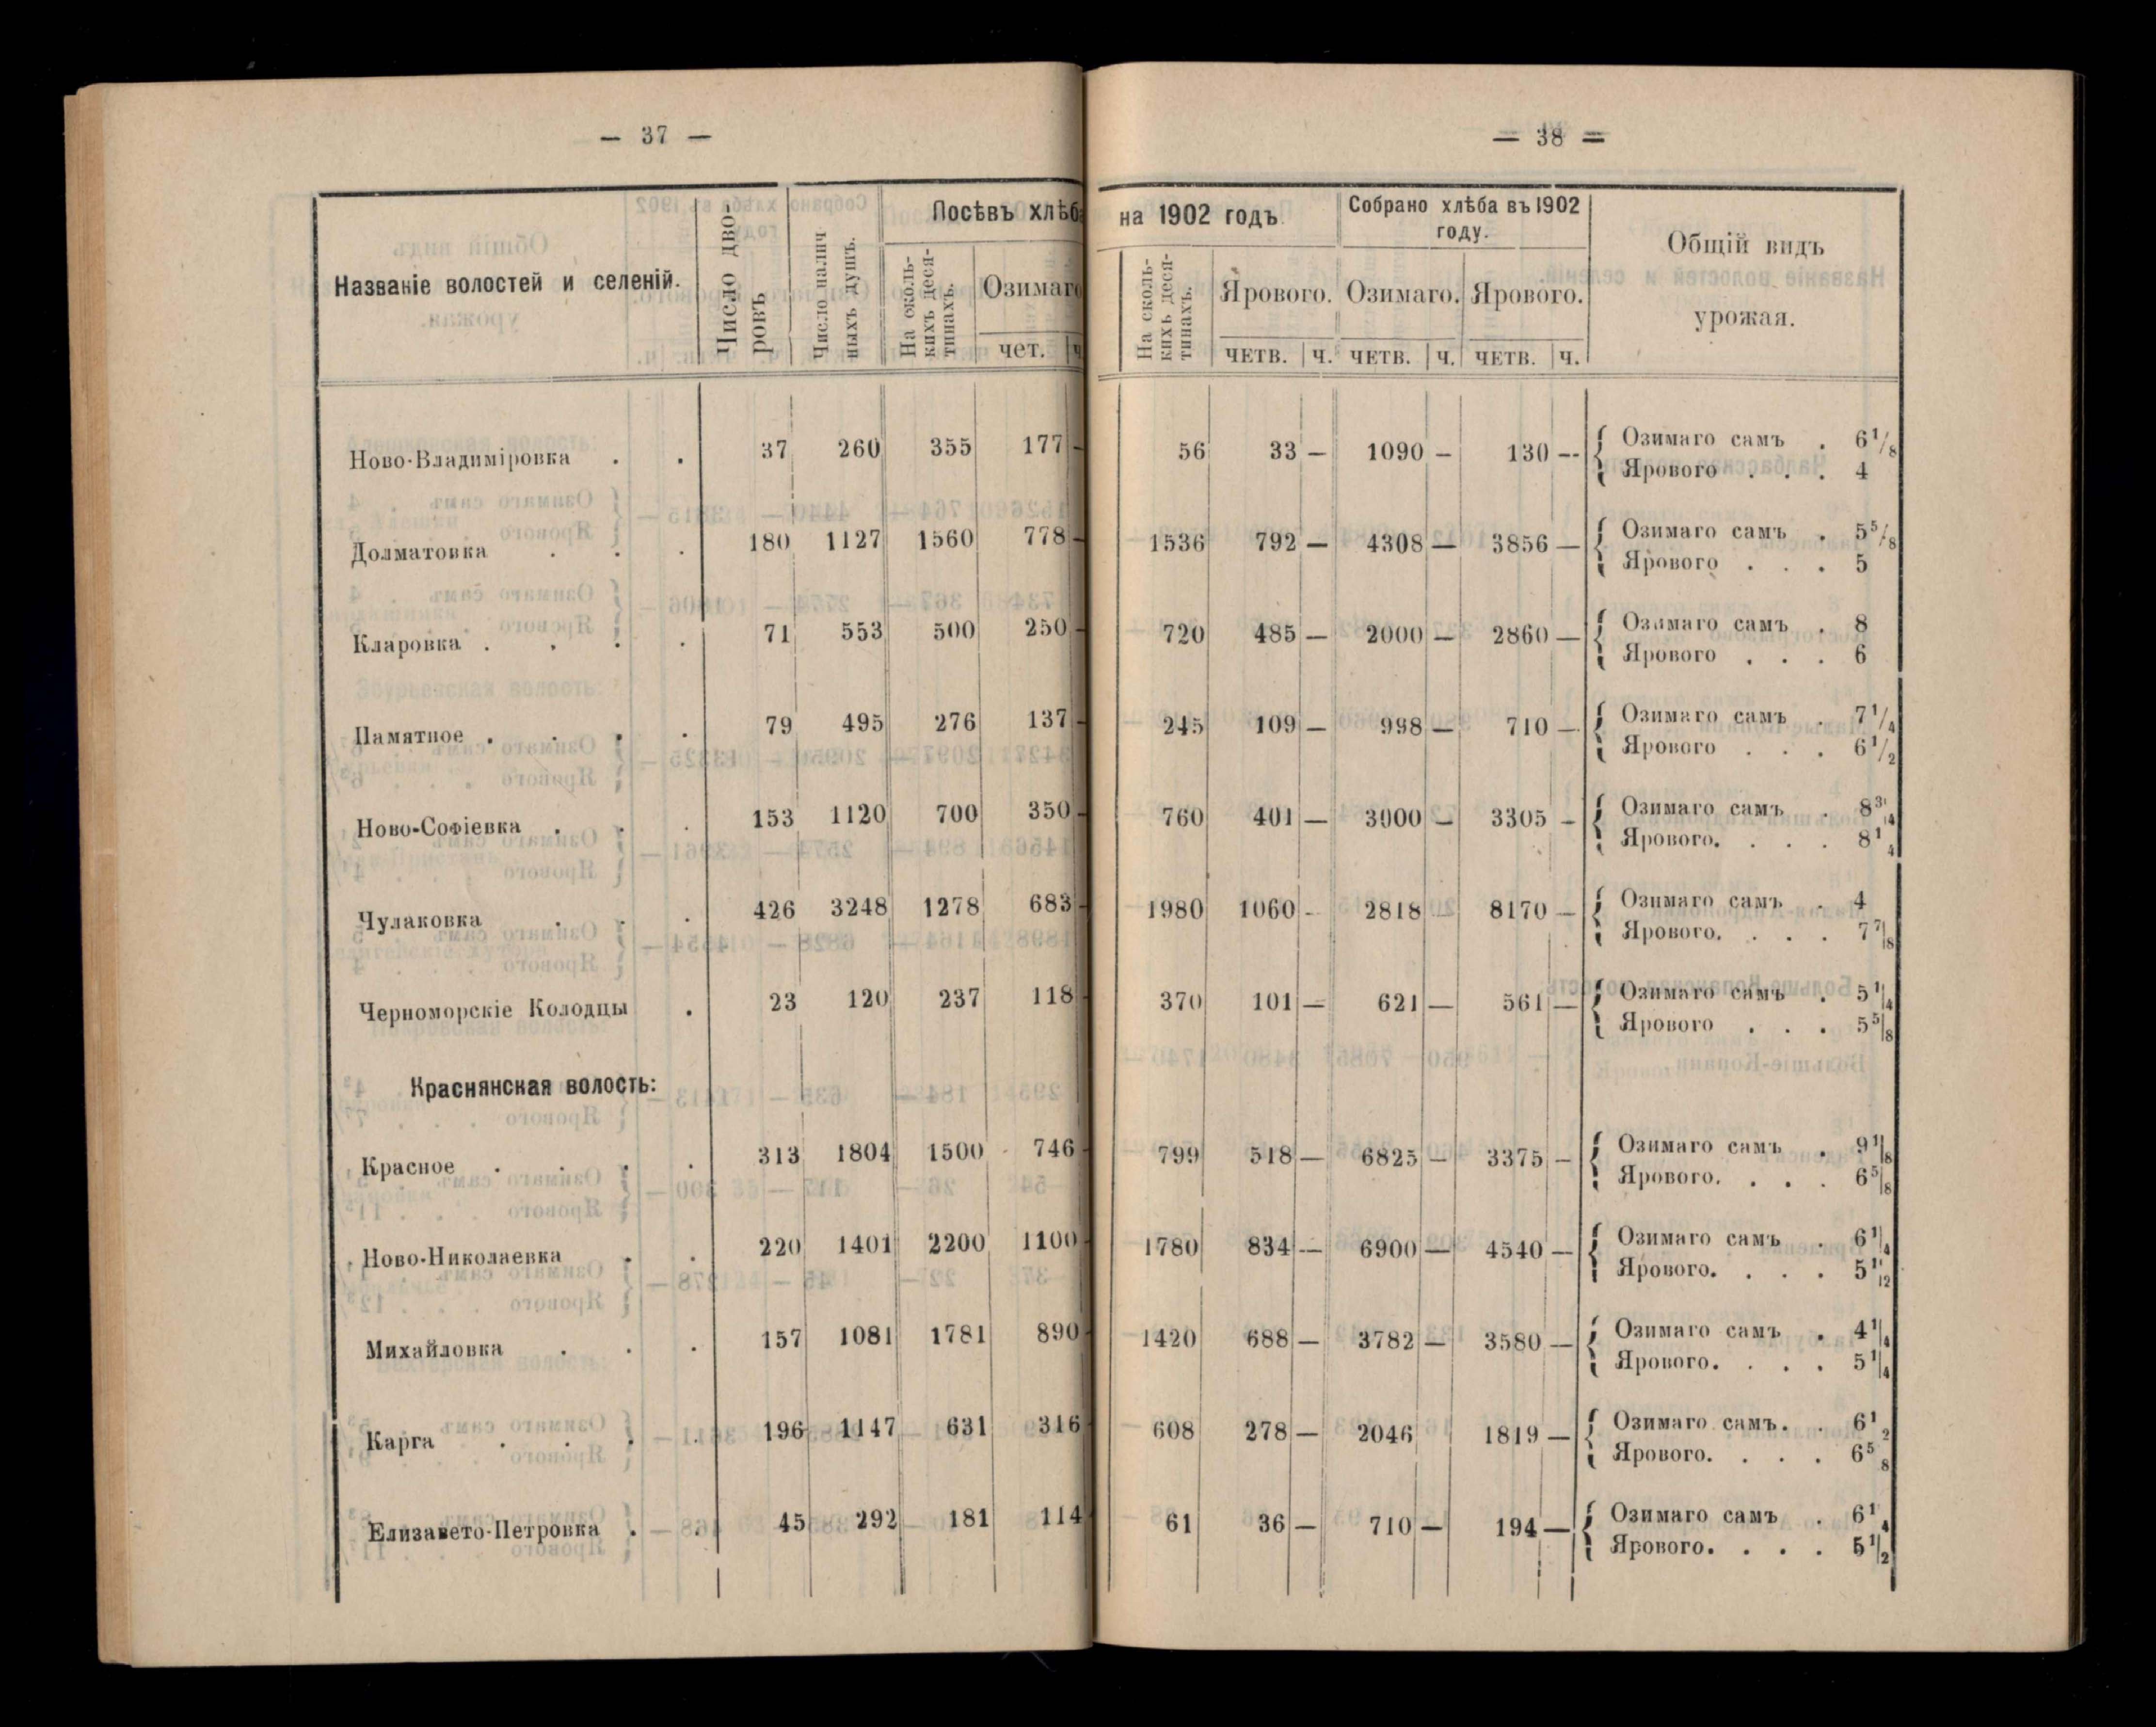 — 37 —
Названіе волостей и селеній.
Число дво-
ровъ
Число налич
ныхъ душъ.
Посѣвъ хлѣб
На сколь-
кихъ деся-
тинахъ.
Озимаго
чет.
Ново-Владиміровка . . 37 260 355 177 —
Долматовка . . . 180 1127 1560 778 —
Кларовка . . . . 71 553 500 250 —
Памятное . . . . 79 495 276 137 —
Ново-Софіевка . . . 153 1120 700 350 —
Чулаковка . . . 426 3248 1278 683 —
Черноморскіе Колодцы . 23 120 237 118
Краснянская волость:
Красное . . . . 313 1804 1500 746
Ново-Николаевка . . 220 1401 2200 1100
Михайловка . . . 157 1081 1781 890
Карга . . . . 196 1147 631 316
Елизавето-Петровка . . 45 292 181 114
— 38 =
на 1902 годъ
Собрано хлѣба въ 1902
году.
Общій видъ
урожая.
На сколь-
кихъ деся-
тинахъ.
Ярового. Озимаго. Ярового.
четв. ч. четв. ч. четв. ч.
56 33 — 1090 — 130 --
Озимаго самъ . 6 1/8
Ярового . . . 4
1536 792 — 4308 — 3856 —
Озимаго самъ . 5 5/8
Ярового . . . 5
720 485 — 2000 — 2860 —
Озимаго самъ . 8
Ярового . . . 6
245 109 — 998 — 710 —
Озимаго самъ . 7 1/4
Ярового . . . 6 1/2
760 401 — 3000 — 3305 —
Озимаго самъ . 8 3/4
Ярового. . . . 8 1/4
1980 1060 - 2818 — 8170 —
Озимаго самъ . 4
Ярового. . . . 7 7/8
370 101 — 621 — 561 —
Озимаго самъ . 5 1/4
Ярового . . . 5 5/8
799 518 — 6825 — 3375 —
Озимаго самъ . 9 1/8
Ярового. . . . 6 5/8
1780 834 — 6900 — 4540 —
Озимаго самъ . 6 1/4
Ярового. . . . 5 1/12
1420 688 — 3782 — 3580 —
Озимаго самъ . 4 1/4
Ярового. . . . 5 1/4
608 278 — 2046 1819 —
Озимаго самъ. . 6 1/2
Ярового. . . . 6 5/8
61 36 — 710 — 194 —
Озимаго самъ . 6 1/4
Ярового. . . . 5 1/2